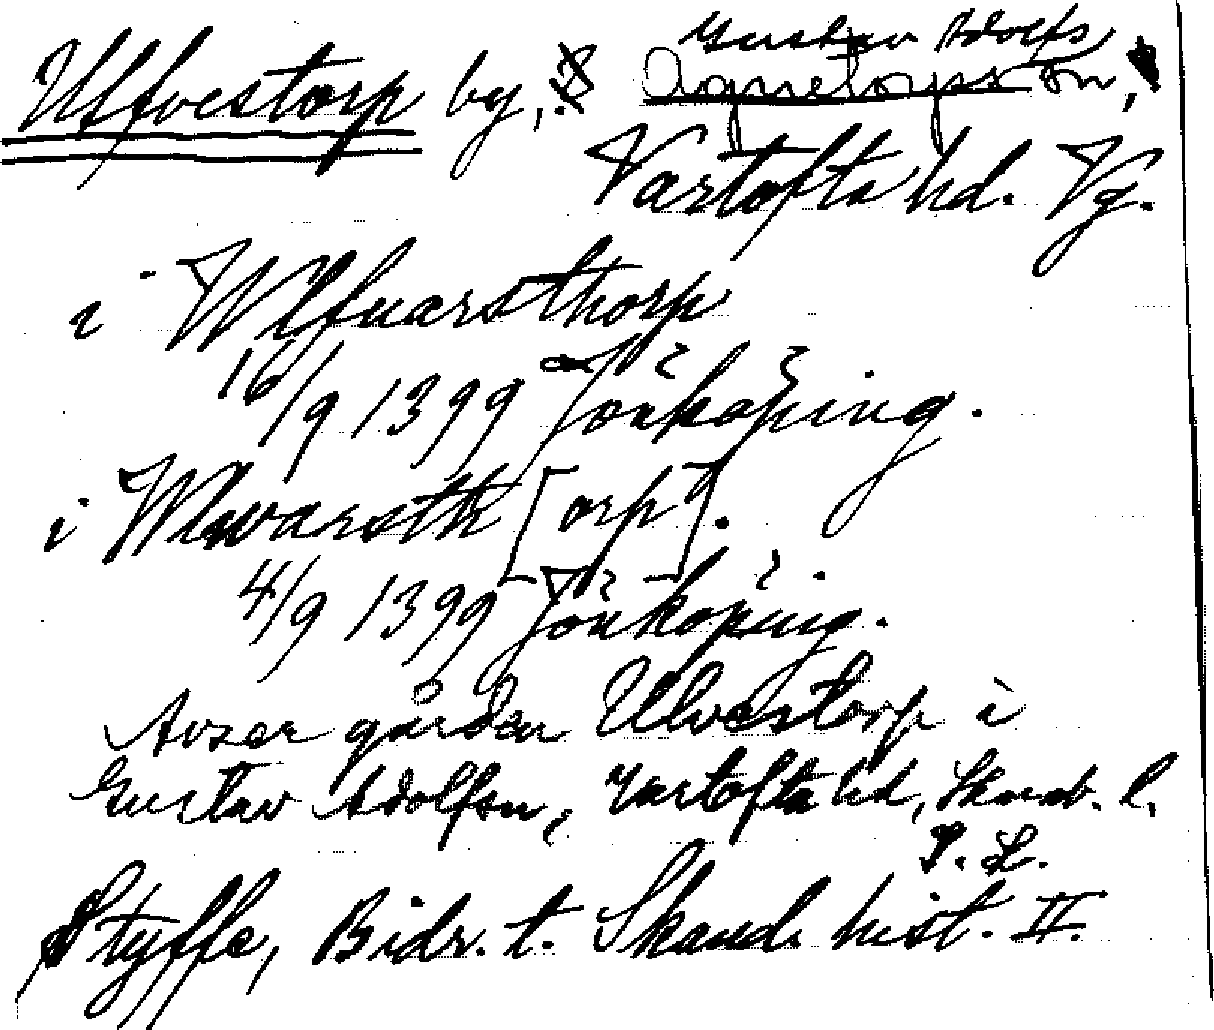 Gustav Adolfs
Ulfvestorp by, Agnetorps sn,
Vartofta hd. Vg.
i Wlfuarsthorp
16/9 1399 Jönköping.
i Wlwarsth[orp].
4/9 1399 Jönköping.
Avser gården Ulvestorp i
Gustav Adolfsn, Vartofta hd, Skarab. l.
S. L.
Styffe, Bidr. t. Skand. hist. II.